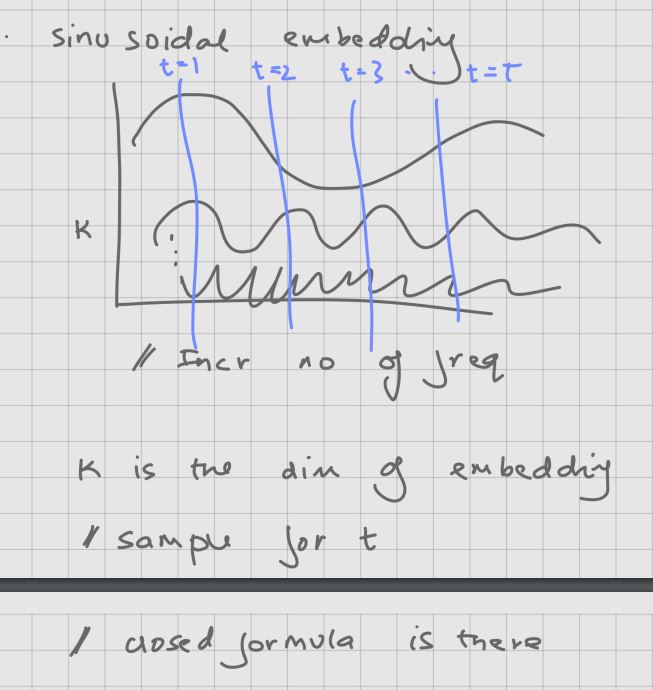 . sinusoidal embedding
t=1 t=2 t=3 . . t=T
K
// Incr no of freq
K is the dim of embedding
// sample for t
/ closed formula is there